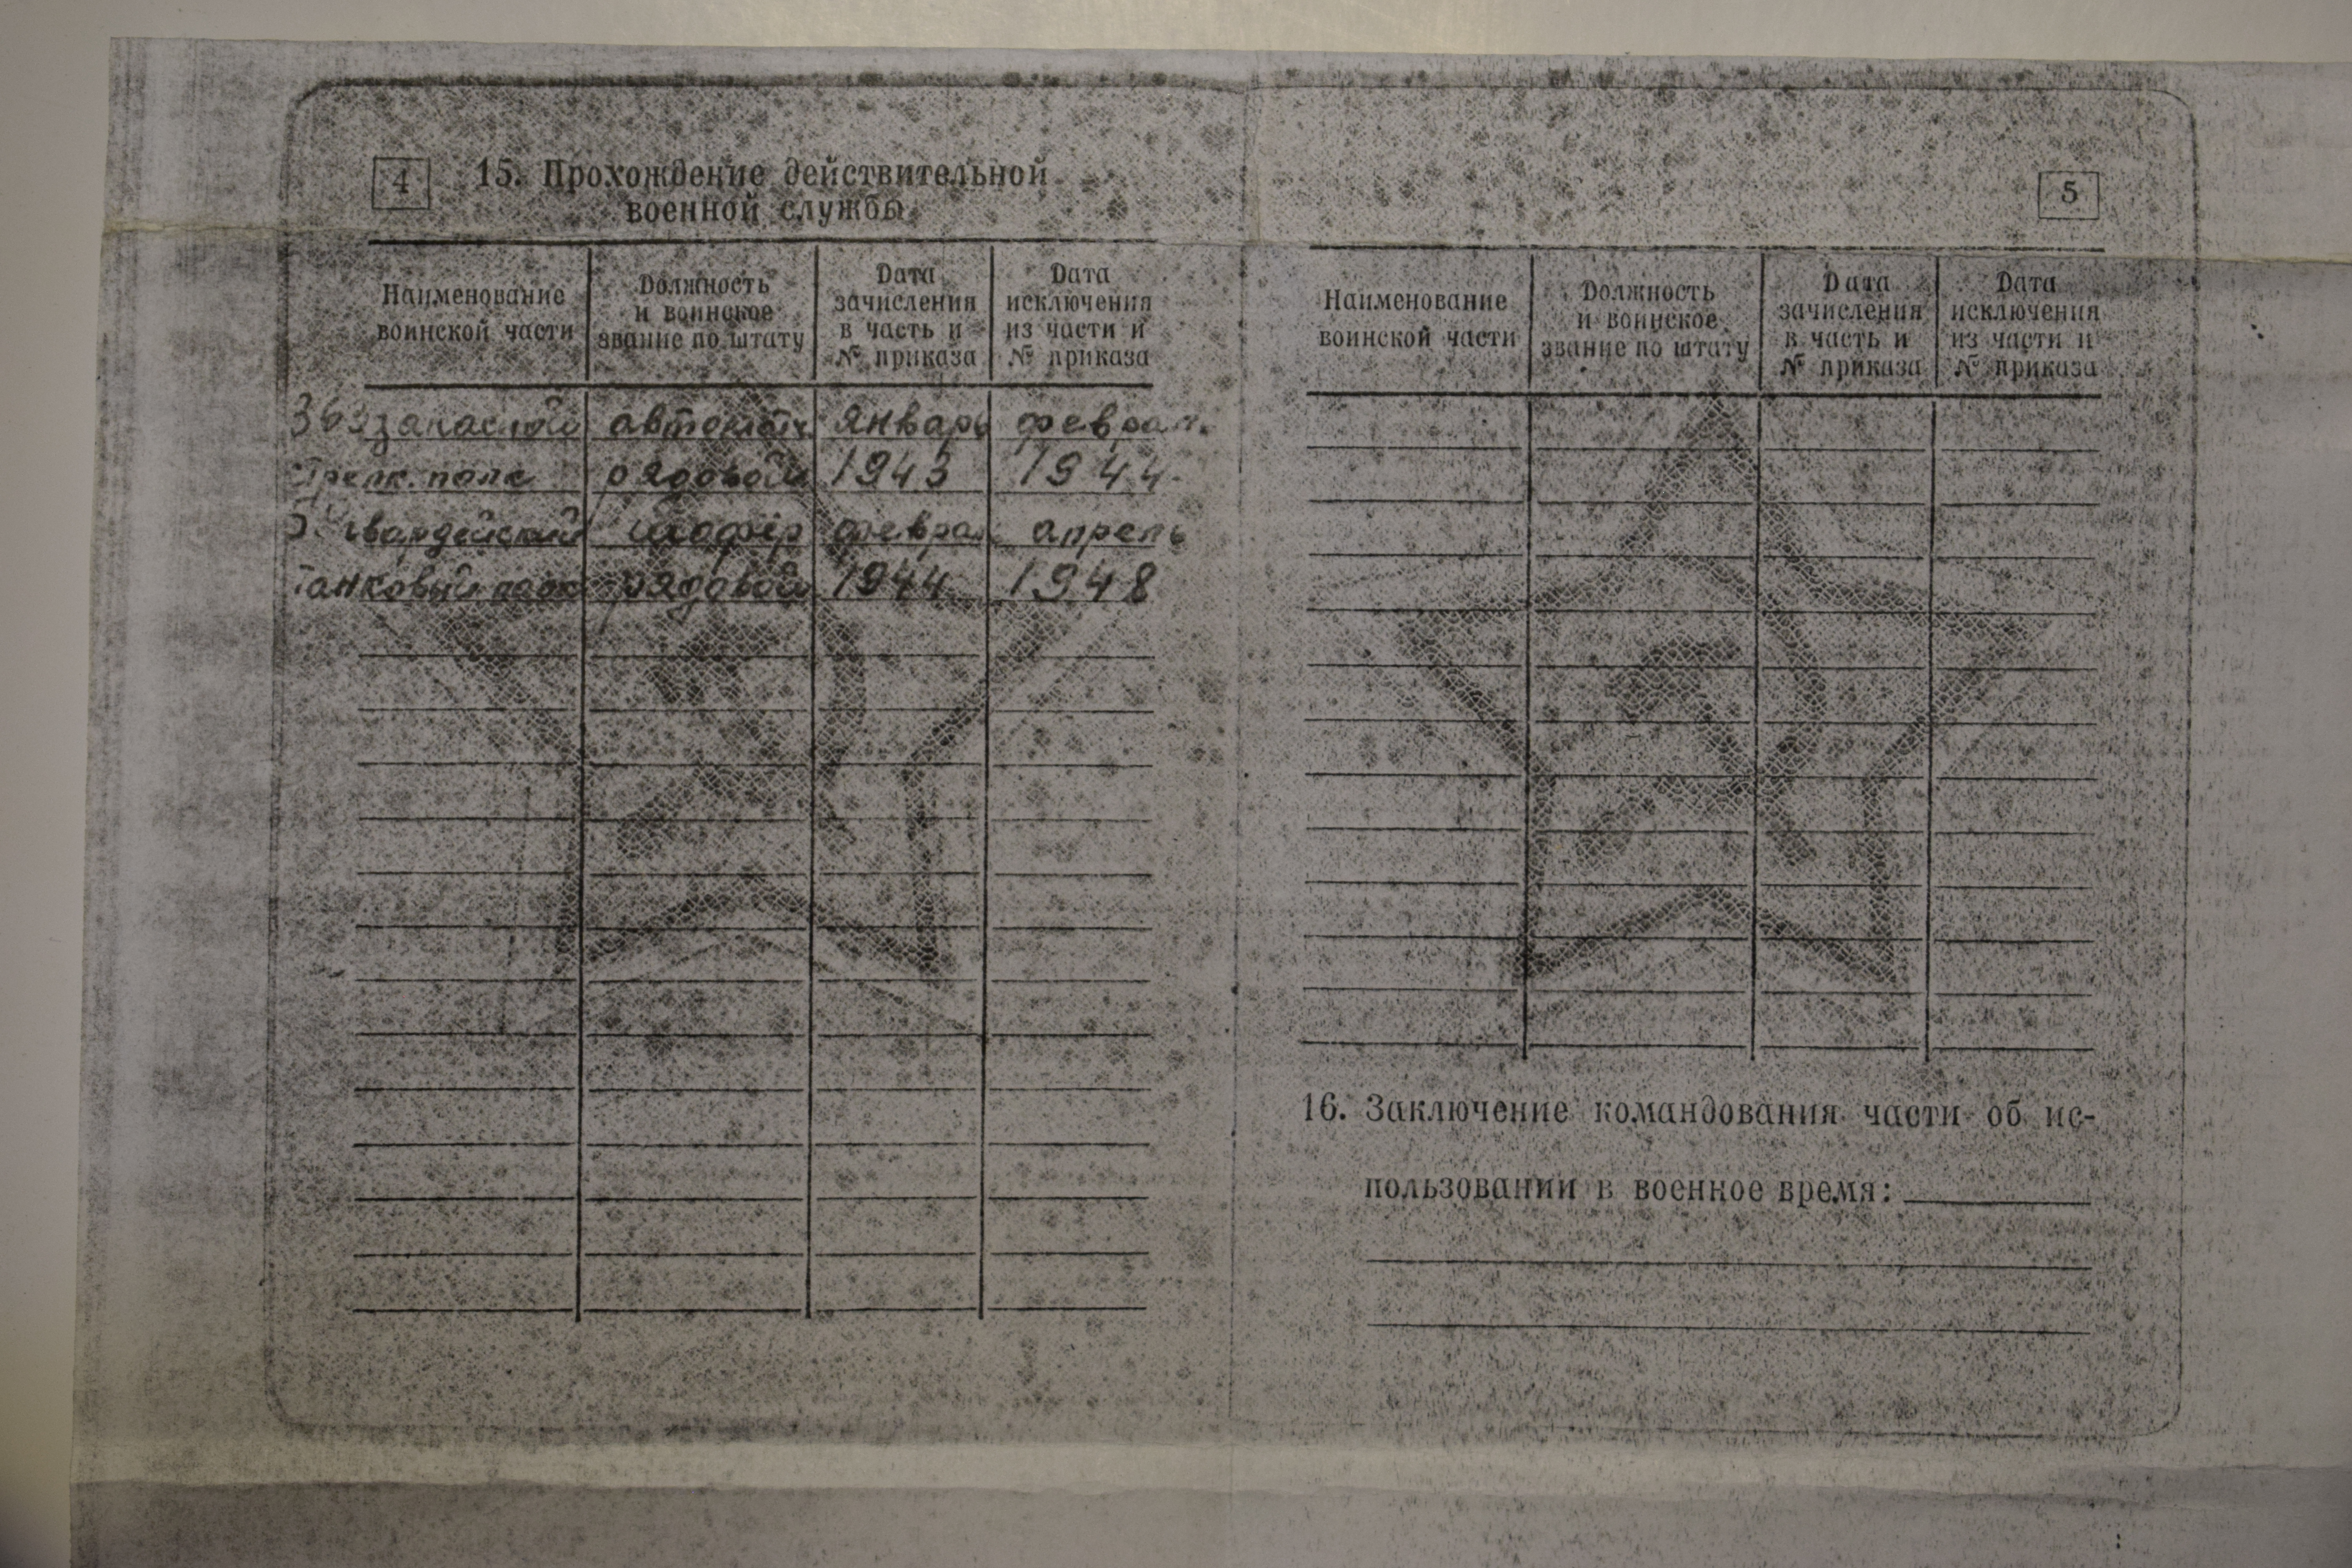 4
15. Прохождение действительной
военной службы
Наименование
воинской части
Должность
и воинское
звание по штату
Дата
зачисления
в часть и
№ приказа
Дата
исключения
из части и
№ приказа
363 запасной автоматч январь феврал.
стрелк. полк рядовой 1943 1944
гвардейский шофер феврал апрель
танковый полк рядовой 1944 1948
5
Наименование
воинской части
Должность
и воинское
звание по штату
Дата
зачисления
в часть и
№ приказа
Дата
исключения
из части и
№ приказа
16. Заключение командования части об ис-
пользовании в военное время: